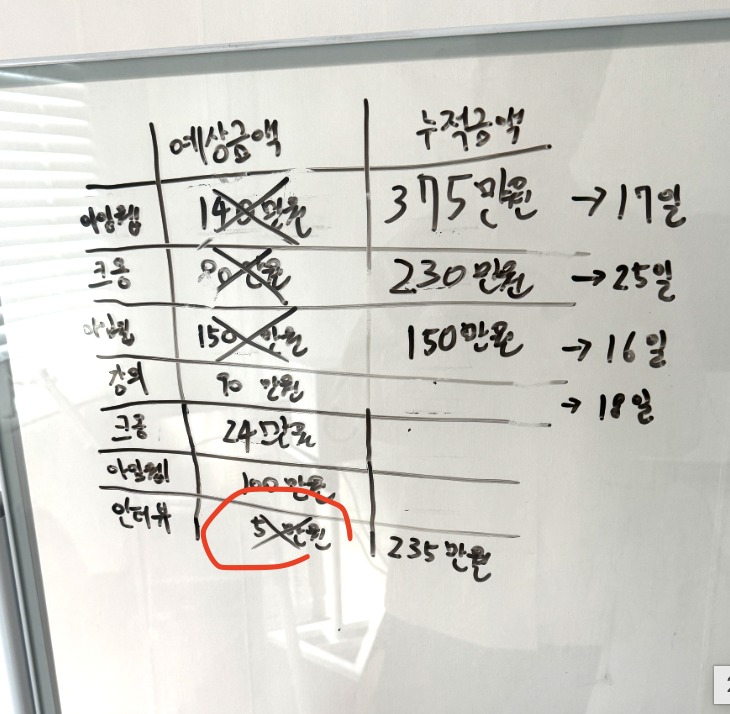 예상금액 누적금액
아임웹 140만원 375만원 →17일
크몽 80만원 230만원 →25일
아임웹 150만원 150만원 →16일
강의 90만원 → 18일
크몽 24만원
아임웹! 100만원
인터뷰 5만원 235만원